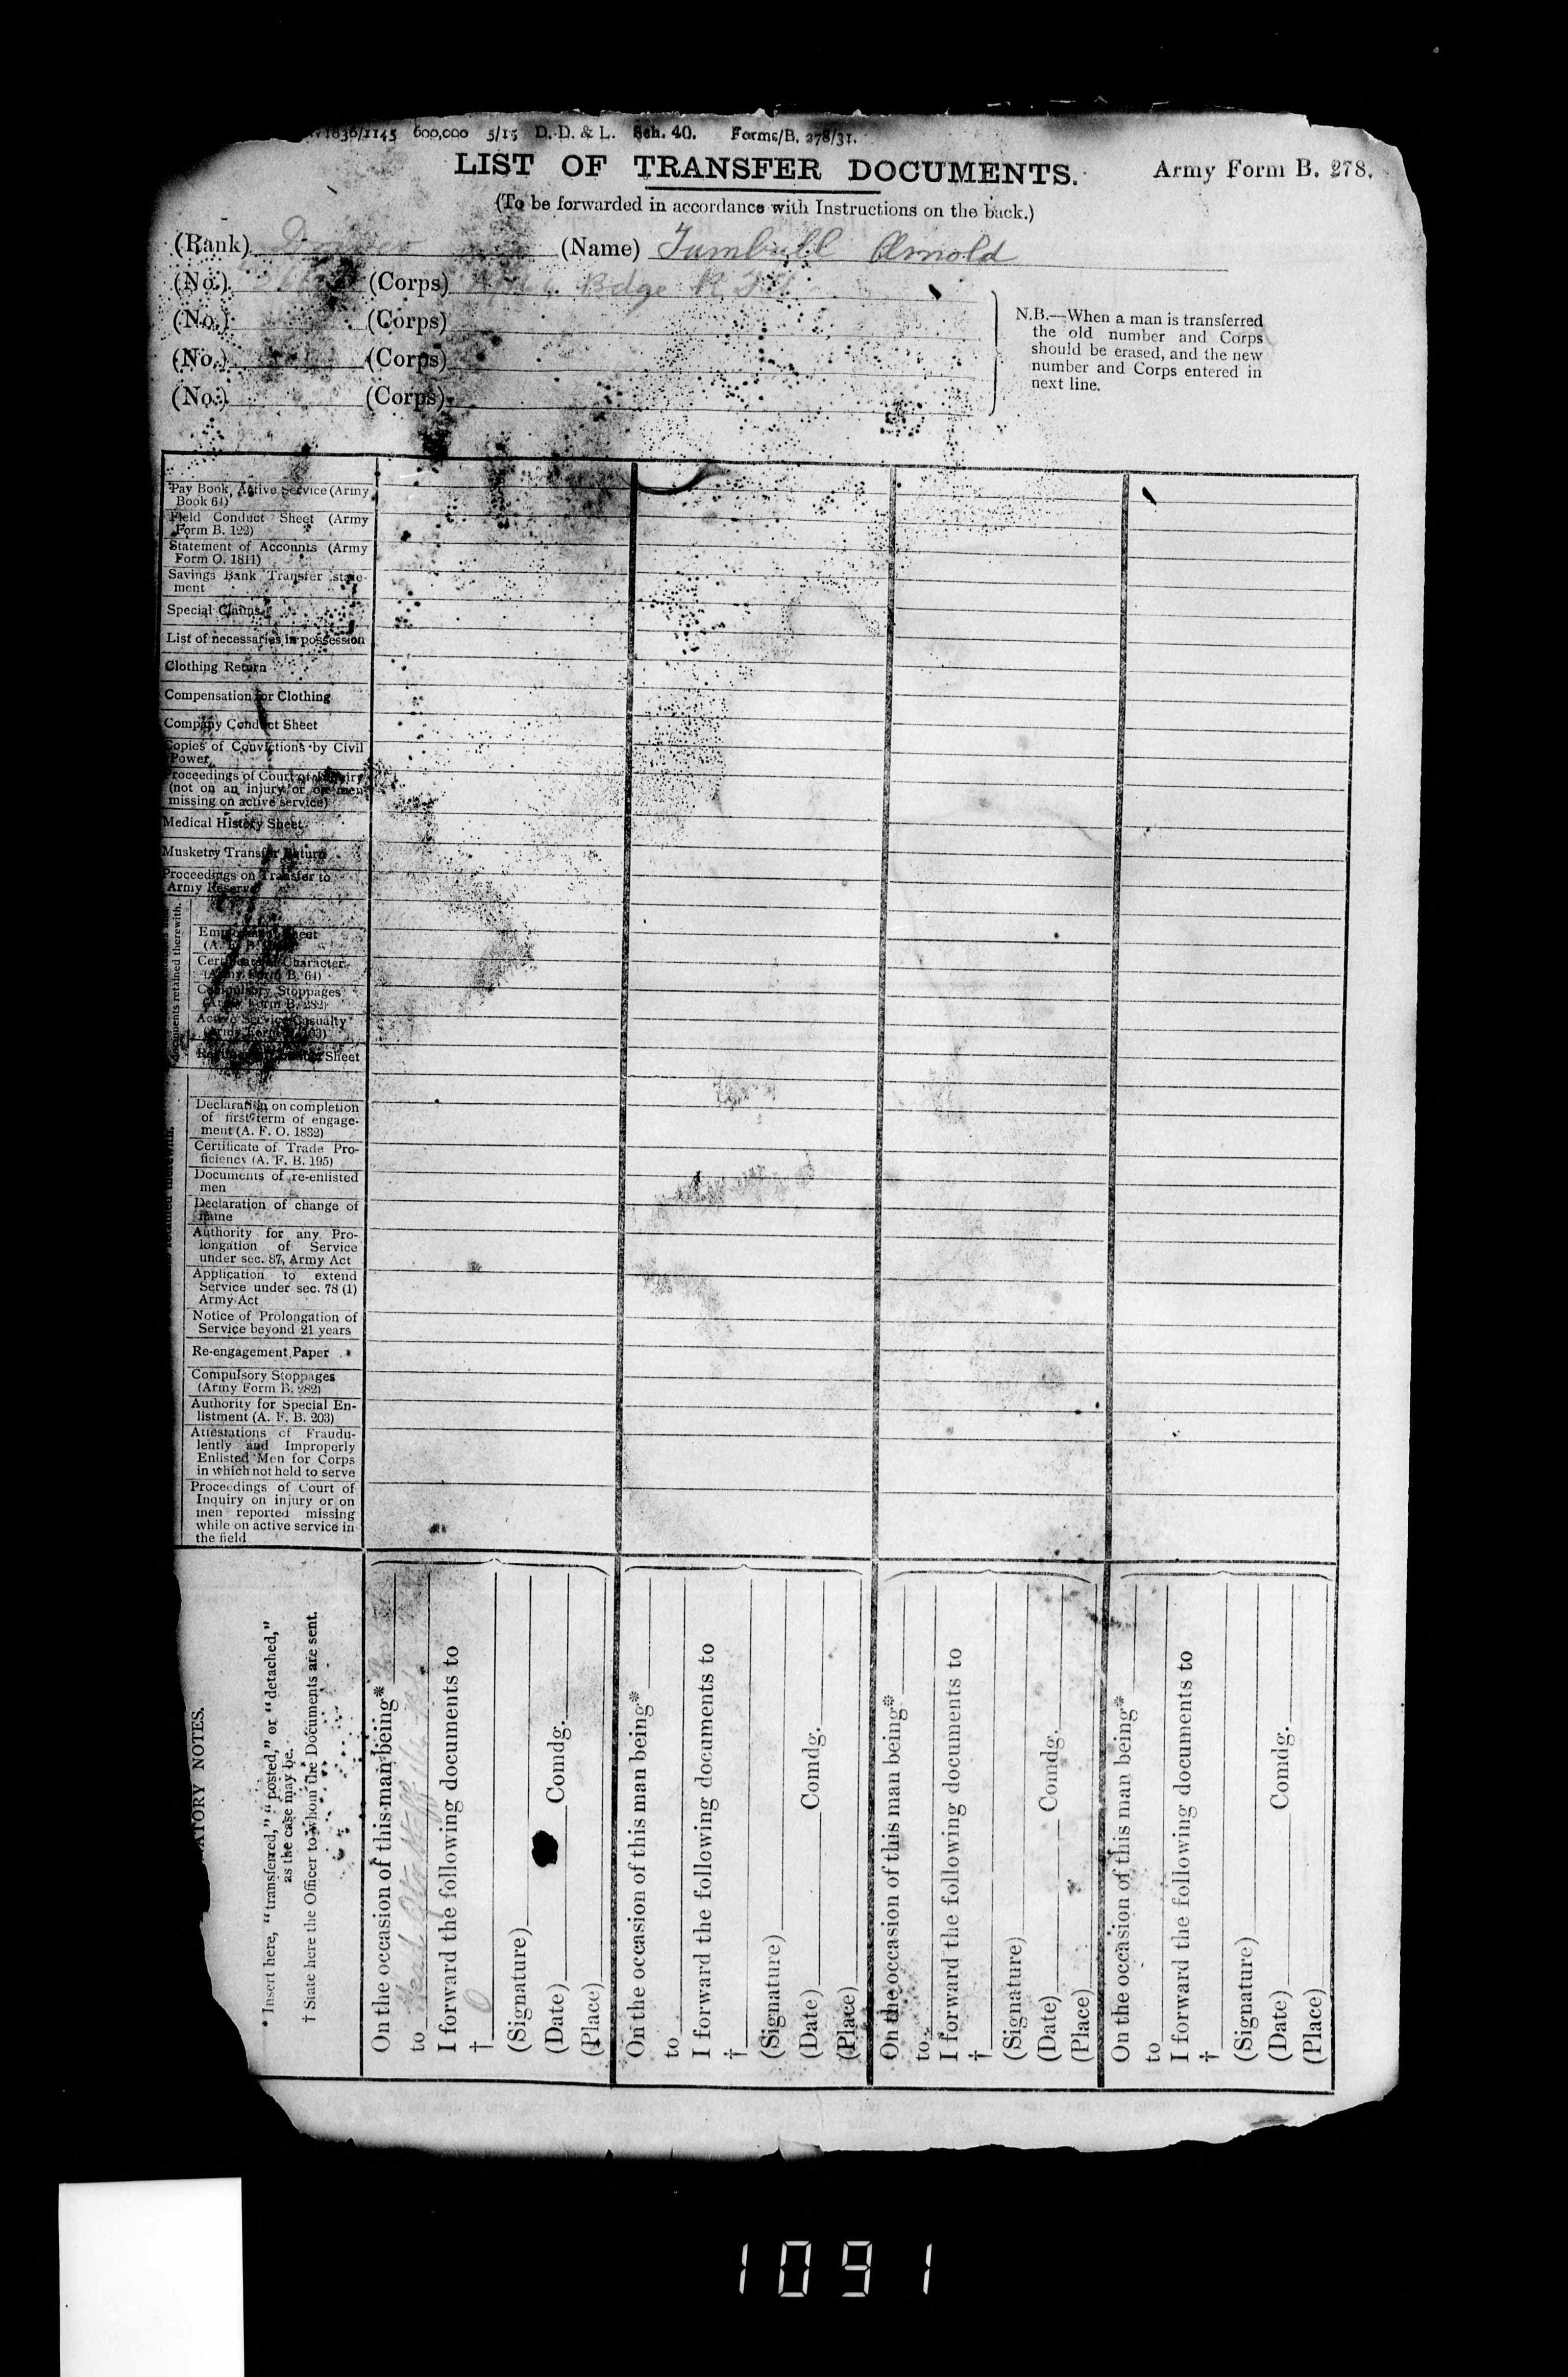 1836/1145 600,000 5/15 D. D. & L. Sch. 40. Forms/B. 278/31.
LIST OF TRANSFER DOCUMENTS.
Army Form B. 278.
(To be forwarded in accordance with Instructions on the back.)
(Rank) (Name) Turnbull Arnold
(No.) (Corps) Bdge
(No.) (Corps)
(No.) (Corps)
(No.) (Corps)
N.B.—When a man is transferred
the old number and Corps
should be erased, and the new
number and Corps entered in
next line.
Pay Book, Active Service (Army
Book 64)
Field Conduct Sheet (Army
Form B. 122)
Statement of Accounts (Army
Form O. 1811)
Savings Bank Transfer state-
ment
Special Claims
List of necessaries in possession
Clothing Return
Compensation for Clothing
Company Conduct Sheet
Copies of Convictions by Civil
Power
Proceedings of Court of Inquiry
(not on an injury or on men
missing on active service)
Medical History Sheet
Musketry Transfer Return
Proceedings on Transfer to
Army Reserve
documents retained therewith.
Sheet
Certificate of Character
(Army Form B. 64)
Compulsory Stoppages
(Army Form B. 282)
Active Service Casualty
Sheet
Declaration on completion
of first term of engage-
ment (A. F. O. 1832)
Certificate of Trade Pro-
ficiency (A. F. B. 195)
Documents of re-enlisted
men
Declaration of change of
name
Authority for any Pro-
longation of Service
under sec. 87, Army Act
Application to extend
Service under sec. 78 (1)
Army Act
Notice of Prolongation of
Service beyond 21 years
Re-engagement Paper
Compulsory Stoppages
(Army Form B. 282)
Authority for Special En-
listment (A. F. B. 203)
Attestations of Fraudu-
lently and Improperly
Enlisted Men for Corps
in which not held to serve
Proceedings of Court of
Inquiry on injury or on
men reported missing
while on active service in
the field
ATORY NOTES.
* Insert here, "transferred," "posted," or "detached,"
as the case may be.
† State here the Officer to whom the Documents are sent.
On the occasion of this man being*
to
I forward the following documents to
†
(Signature)
(Date) Comdg.
(Place)
On the occasion of this man being*
to
I forward the following documents to
†
(Signature)
(Date) Comdg.
(Place)
On the occasion of this man being*
to
I forward the following documents to
†
(Signature)
(Date) Comdg.
(Place)
On the occasion of this man being*
to
I forward the following documents to
†
(Signature)
(Date) Comdg.
(Place)
1091